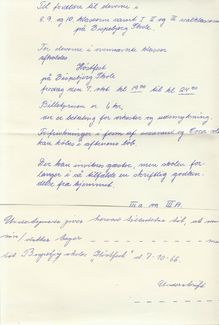 Til forældre til eleverne i
8. 9. og 10. klasserne samt I. II og III realklasserne
på Bispebjerg Skole.
For eleverne i ovennævnte klasser
afholdes
Høstfest
på Bispebjerg Skole
fredag den 7. okt. kl 19⁰⁰ til kl 24⁰⁰
Billetprisen er 6 kr.
der er betaling for orkester og udsmykning.
Forfriskninger i form af sodavand og Coca cola
kan købes i aftenens løb.
Der kan inviteres gæster, men skolen for-
langer i så tilfælde en skriftlig godken-
delse fra hjemmet.
III a og III A.
Undertegnede giver herved tilladelse til, at
min søn/datter tager med
til Bispebjerg skoles "Høstfest" d. 7-10-66.
Underskrift